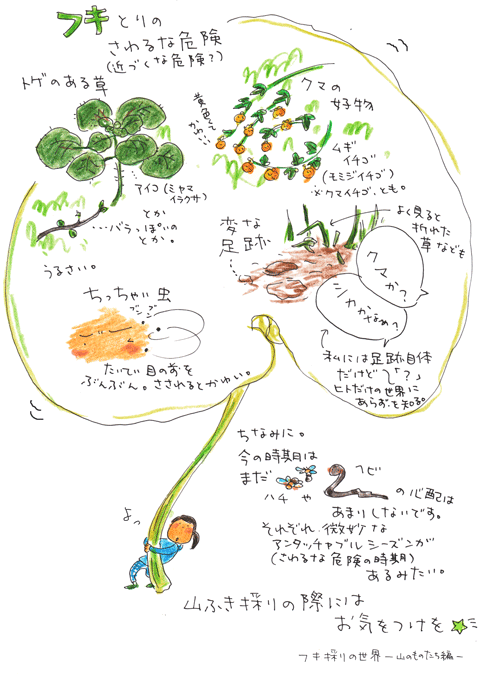 フキとりの
さわるな危険
(近づくな危険?)
トゲのある草
アイコ(ミヤマ
イラクサ)
とか
・・・バラっぽいの
とか。
クマの
好物
黄色くて
かわいい
ムギ
イチゴ
(モミジイチゴ)
※クマイチゴ、とも。
変な
足跡
よく見ると
折れた
草なども
クマか?
シカかなぁ?
私には足跡自体
だけど「?」
ヒトだけの世界に
あらず、を知る。
うるさい。
ちっちゃい虫
ブンブン
たいてい目の前を
ぶんぶん。さされるとかゆい。
ちなみに。
今の時期は
まだ
ハチや
ヘビ
の心配は
あまりしないです。
それぞれ、微妙な
アンタッチャブルシーズンが
(さわるな危険の時期)
あるみたい。
よっ
山ふき採りの際には
お気をつけを
フキ採りの世界 ー山のものたち編ー